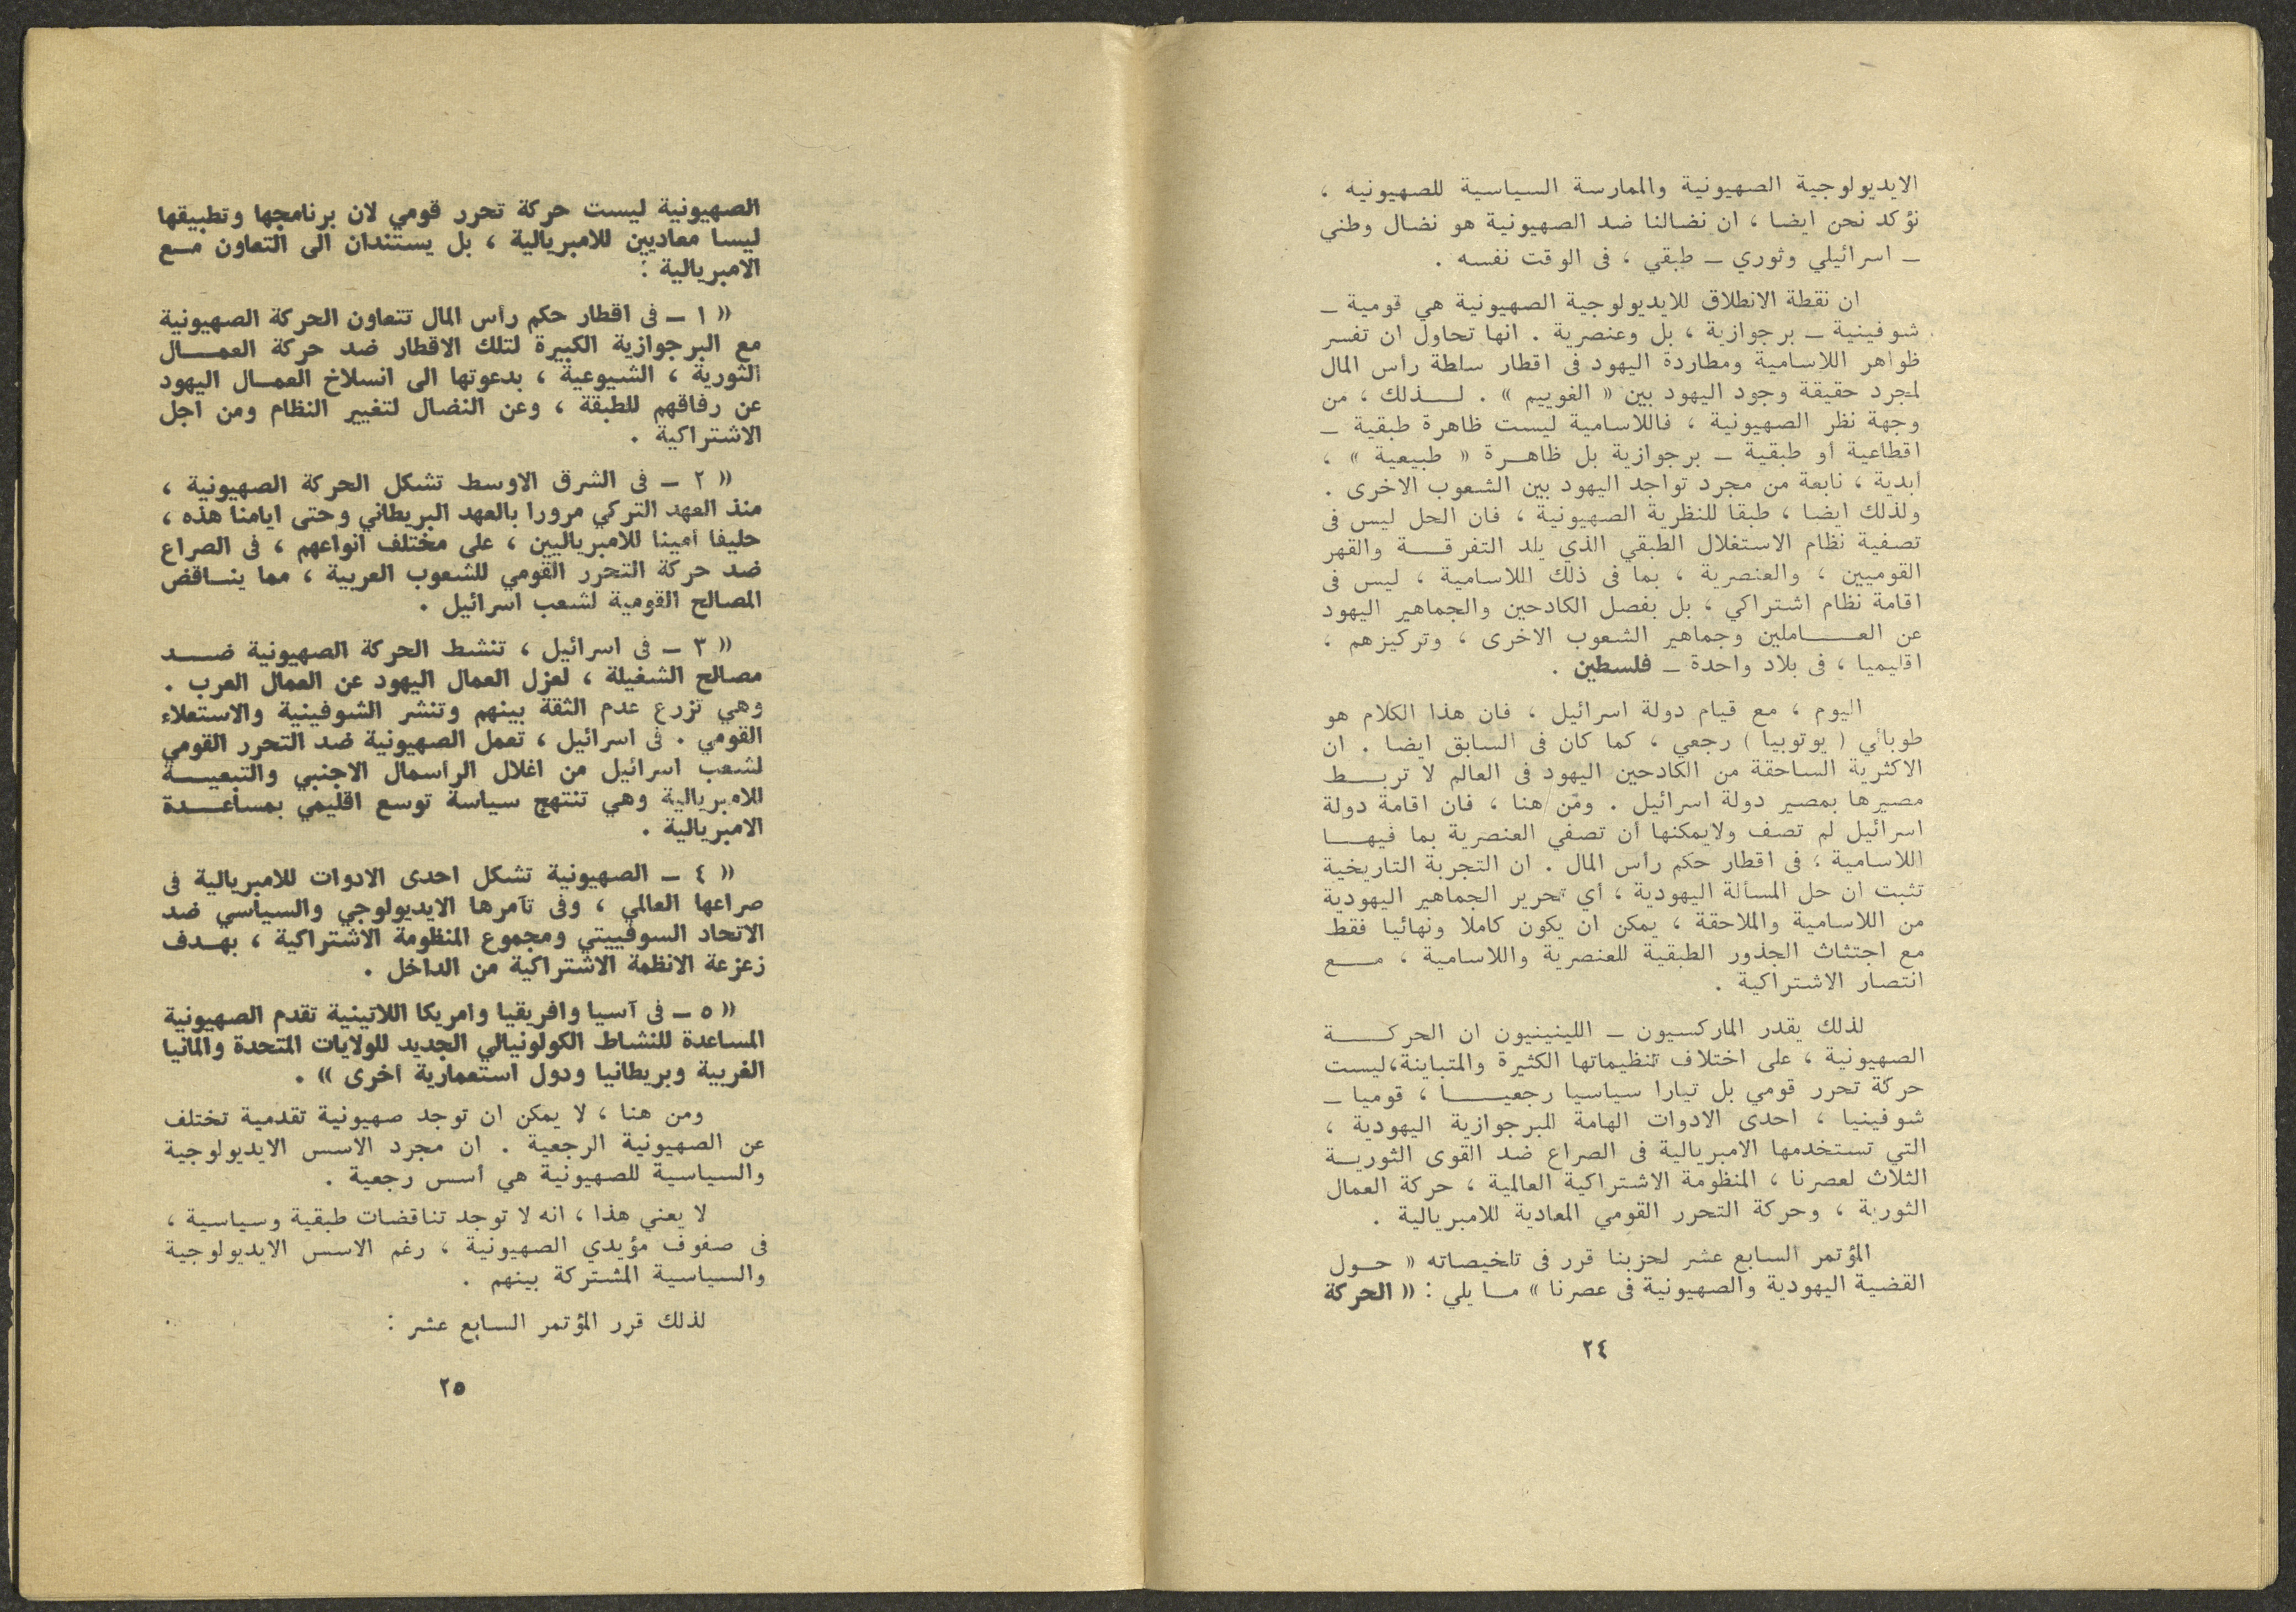 الايديولوجية الصهيونية والممارسة السياسية للصهيونية ،
نؤكد نحن ايضا ، ان نضالنا ضد الصهيونية هو نضال وطني
ـ اسرائيلي وثوري ـ طبقي ، فى الوقت نفسه .
ان نقطة الانطلاق للايديولوجية الصهيونية هي قومية ـ
شوفينية ـ برجوازية ، بل وعنصرية . انها تحاول ان تفسر
ظواهر اللاسامية ومطاردة اليهود فى اقطار سلطة رأس المال
لمجرد حقيقة وجود اليهود بين « الغوييم » . لـــذلك ، من
وجهة نظر الصهيونية ، فاللاسامية ليست ظاهرة طبقية ـ
اقطاعية أو طبقية ـ برجوازية بل ظاهـرة « طبيعية » ،
ابدية ، نابعة من مجرد تواجد اليهود بين الشعوب الاخرى .
ولذلك ايضا ، طبقا للنظرية الصهيونية ، فان الحل ليس فى
تصفية نظام الاستغلال الطبقي الذي يلد التفرقـــة والقهر
القوميين ، والعنصرية ، بما فى ذلك اللاسامية ، ليس فى
اقامة نظام اشتراكي ، بل بفصل الكادحين والجماهير اليهود
عن العــــاملين وجماهير الشعوب الاخرى ، وتركيزهم ،
اقليميا ، فى بلاد واحدة ـ فلسطين .
اليوم ، مع قيام دولة اسرائيل ، فان هذا الكلام هو
طوبائي ( يوتوبيا ) رجعي ، كما كان فى السابق ايضا . ان
الاكثرية الساحقة من الكادحين اليهود فى العالم لا تربـــط
مصيرها بمصير دولة اسرائيل . ومن هنا ، فان اقامة دولة
اسرائيل لم تصف ولايمكنها أن تصفي العنصرية بما فيهـــا
اللاسامية ، فى اقطار حكم رأس المال . ان التجربة التاريخية
تثبت ان حل المسألة اليهودية ، أي تحرير الجماهير اليهودية
من اللاسامية والملاحقة ، يمكن ان يكون كاملا ونهائيا فقط
مع اجتثاث الجذور الطبقية للعنصرية واللاسامية ، مـــع
انتصار الاشتراكية .
لذلك يقدر الماركسيون ـ اللينينيون ان الحركـــــة
الصهيونية ، على اختلاف تنظيماتها الكثيرة والمتباينة،ليست
حركة تحرر قومي بل تيارا سياسيا رجعيـــــا ، قوميا ـ
شوفينيا ، احدى الادوات الهامة للبرجوازية اليهودية ،
التي تستخدمها الامبريالية فى الصراع ضد القوى الثوريـــة
الثلاث لعصرنا ، المنظومة الاشتراكية العالمية ، حركة العمال
الثورية ، وحركة التحرر القومي المعادية للامبريالية .
المؤتمر السابع عشر لحزبنا قرر فى تلخيصاته « حــول
القضية اليهودية والصهيونية فى عصرنا » مــا يلي : « الحركة
٢٤
الصهيونية ليست حركة تحرر قومي لان برنامجها وتطبيقها
ليسا معاديين للامبريالية ، بل يستندان الى التعاون مــع
الامبريالية :
« ١ ـ فى اقطار حكم رأس المال تتعاون الحركة الصهيونية
مع البرجوازية الكبيرة لتلك الاقطار ضد حركة العمـــال
الثورية ، الشيوعية ، بدعوتها الى انسلاخ العمــال اليهود
عن رفاقهم للطبقة ، وعن النضال لتغيير النظام ومن اجل
الاشتراكية .
« ٢ ـ فى الشرق الاوسط تشكل الحركة الصهيونية ،
منذ العهد التركي مرورا بالعهد البريطاني وحتى ايامنا هذه ،
حليفا أمينا للامبرياليين ، على مختلف انواعهم ، فى الصراع
ضد حركة التحرر القومي للشعوب العربية ، مما ينــاقض
المصالح القومية لشعب اسرائيل .
« ٣ ـ فى اسرائيل ، تنشط الحركة الصهيونية ضــــد
مصالح الشغيلة ، لعزل العمال اليهود عن العمال العرب .
وهي تزرع عدم الثقة بينهم وتنشر الشوفينية والاستعلاء
القومي . فى اسرائيل ، تعمل الصهيونية ضد التحرر القومي
لشعب اسرائيل من اغلال الرأسمال الاجنبي والتبعيـــة
للامبريالية وهي تنتهج سياسة توسع اقليمي بمساعـــدة
الامبريالية .
« ٤ ـ الصهيونية تشكل احدى الادوات للامبريالية فى
صراعها العالمي ، وفى تآمرها الايديولوجي والسياسي ضد
الاتحاد السوفييتي ومجموع المنظومة الاشتراكية ، بهــدف
زعزعة الانظمة الاشتراكية من الداخل .
« ٥ ـ فى آسيا وافريقيا وامريكا اللاتينية تقدم الصهيونية
المساعدة للنشاط الكولونيالي الجديد للولايات المتحدة والمانيا
الغربية وبريطانيا ودول استعمارية اخرى » .
ومن هنا ، لا يمكن ان توجد صهيونية تقدمية تختلف
عن الصهيونية الرجعية . ان مجرد الاسس الايديولوجية
والسياسية للصهيونية هي أسس رجعية .
لا يعني هذا ، انه لا توجد تناقضات طبقية وسياسية ،
فى صفوف مؤيدي الصهيونية ، رغم الاسس الايديولوجية
والسياسية المشتركة بينهم .
لذلك قرر المؤتمر السابع عشر :
٢٥